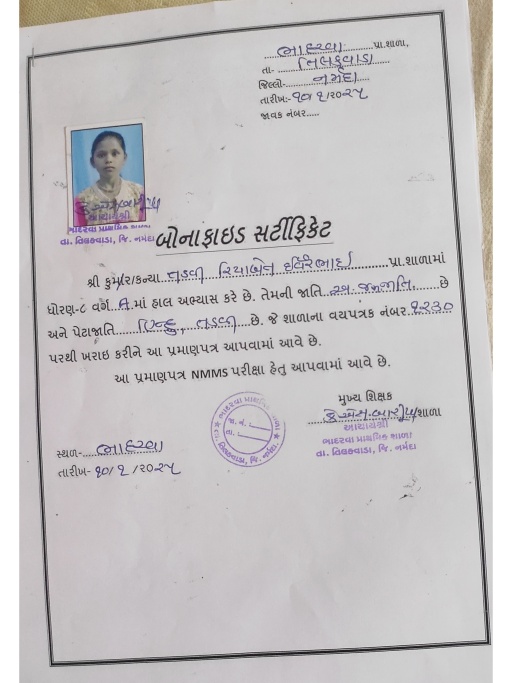 ભાદરવા પ્રા.શાળા,
તા- તિલકવાડા
જિલ્લો- નર્મદા
તારીખ:- ૧૦/૧/૨૦૨૫
જાવક નંબર.....
આચાર્યશ્રી
ભાદરવા પ્રાથમિક શાળા
તા. તિલકવાડા, જિ. નર્મદા
બોનાફાઇડ સર્ટીફિકેટ
શ્રી કુમાર/કન્યા તડવી રિયાબેન પ્રા.શાળામાં
ધોરણ-૮ વર્ગ A માં હાલ અભ્યાસ કરે છે. તેમની જાતિ અનુ. જનજાતિ છે
અને પેટાજાતિ હિન્દુ, તડવી છે. જે શાળાના વયપત્રક નંબર ૧૨૩૦
પરથી ખરાઇ કરીને આ પ્રમાણપત્ર આપવામાં આવે છે.
આ પ્રમાણપત્ર NMMS પરીક્ષા હેતુ આપવામાં આવે છે.
મુખ્ય શિક્ષક
શાળા
આચાર્યશ્રી
ભાદરવા પ્રાથમિક શાળા
તા. તિલકવાડા, જિ. નર્મદા
જા. નં.
તા.
સ્થળ- ભાદરવા
તારીખ- ૧૦/૧/૨૦૨૫